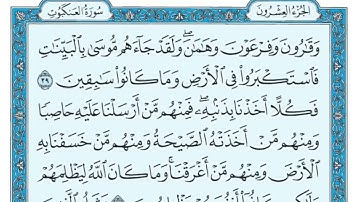 الجزء العشرون سورة العنكبوت
وَقَٰرُونَ وَفِرۡعَوۡنَ وَهَٰمَٰنَۖ وَلَقَدۡ جَآءَهُم مُّوسَىٰ بِٱلۡبَيِّنَٰتِ
فَٱسۡتَكۡبَرُواْ فِي ٱلۡأَرۡضِ وَمَا كَانُواْ سَٰبِقِينَ ٣٩
فَكُلًّا أَخَذۡنَا بِذَنۢبِهِۦۖ فَمِنۡهُم مَّنۡ أَرۡسَلۡنَا عَلَيۡهِ حَاصِبٗا
وَمِنۡهُم مَّنۡ أَخَذَتۡهُ ٱلصَّيۡحَةُ وَمِنۡهُم مَّنۡ خَسَفۡنَا بِهِ
ٱلۡأَرۡضَ وَمِنۡهُم مَّنۡ أَغۡرَقۡنَاۚ وَمَا كَانَ ٱللَّهُ لِيَظۡلِمَهُمۡ